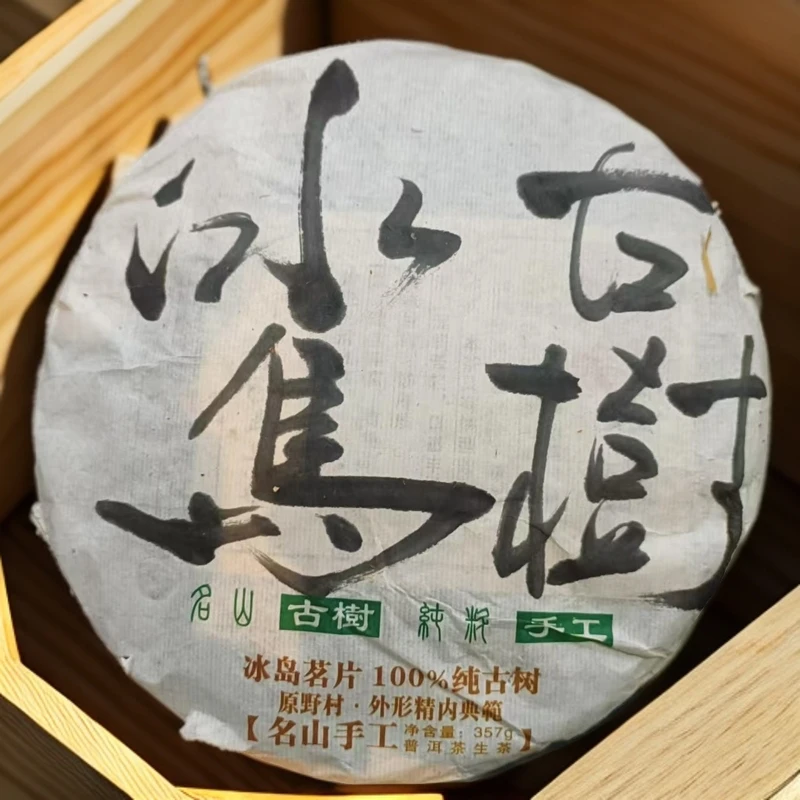 古樹
冰島
名山 古樹 純料 手工
冰岛茗片 100%纯古树
原野村·外形精内典範
【名山手工 净含量:357g
普洱茶生茶】